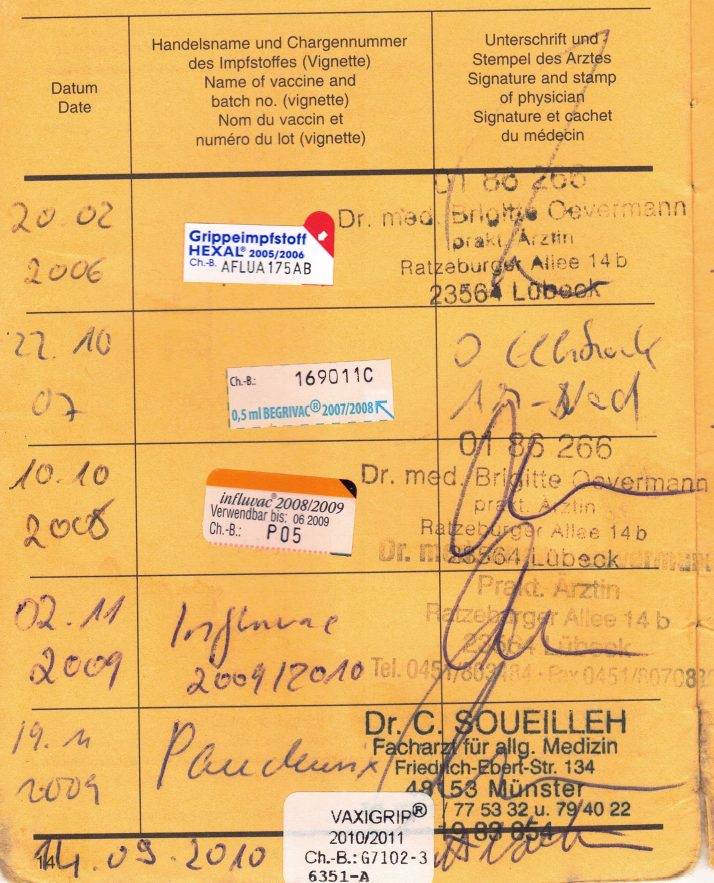 Datum
Date
Handelsname und Chargennummer
des Impfstoffes (Vignette)
Name of vaccine and
batch no. (vignette)
Nom du vaccin et
numéro du lot (vignette)
Unterschrift und
Stempel des Arztes
Signature and stamp
of physician
Signature et cachet
du médecin
20.02
2006
Grippeimpfstoff
HEXAL® 2005/2006
Ch.-B. AFLUA175AB
01 86 266
Dr. med. Brigitte Oevermann
prakt. Ärztin
Ratzeburger Allee 14 b
23564 Lübeck
22.10
07
Ch.-B.: 169011C
0,5 ml BEGRIVAC® 2007/2008
10.10
2008
influvac® 2008/2009
Verwendbar bis: 06 2009
Ch.-B.: P05
01 86 266
Dr. med. Brigitte Oevermann
prakt. Ärztin
Ratzeburger Allee 14 b
23564 Lübeck
02.11
2009
Influvac
2009/2010
Prakt. Ärztin
Ratzeburger Allee 14 b
23564 Lübeck
19.11
2009
Pandemrix
Dr. C. SOUEILLEH
Facharzt für allg. Medizin
Friedrich-Ebert-Str. 134
48153 Münster
/ 77 53 32 u. 79 40 22
14.09.2010
VAXIGRIP®
2010/2011
Ch.-B.: G7102-3
6351-A
14